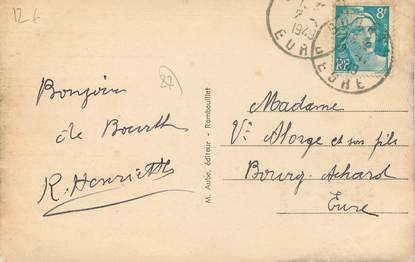 12 f
8F
RF
2
1949
EURE
EURE
37
Bonjour
de Bourth
R. Henriette
M. Aube, éditeur - Rambouillet
Madame
Ve Alorge et son fils
Bourg-Achard
Eure